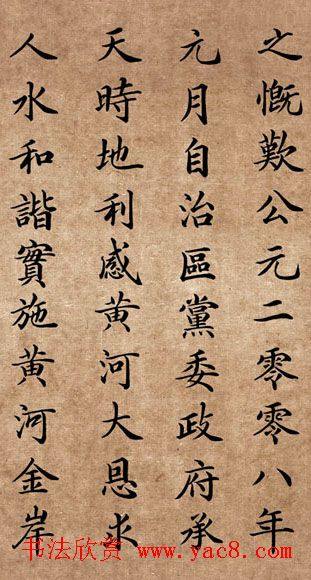 之慨歎公元二零零八年
元月自治區黨委政府承
天時地利感黄河大恩求
人水和諧實施黄河金岸
书法欣赏 www.yac8.com